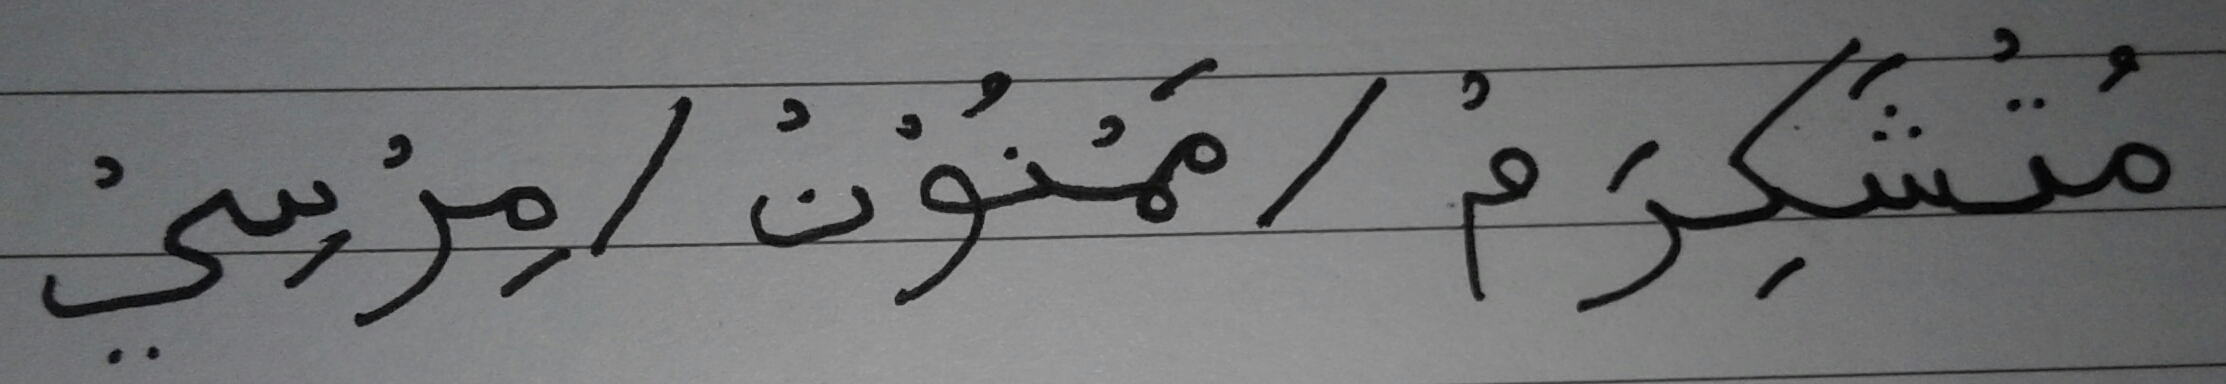 مُتْشَكِرَمْ / مَمْنُوْنْ / مِرْسِيْ